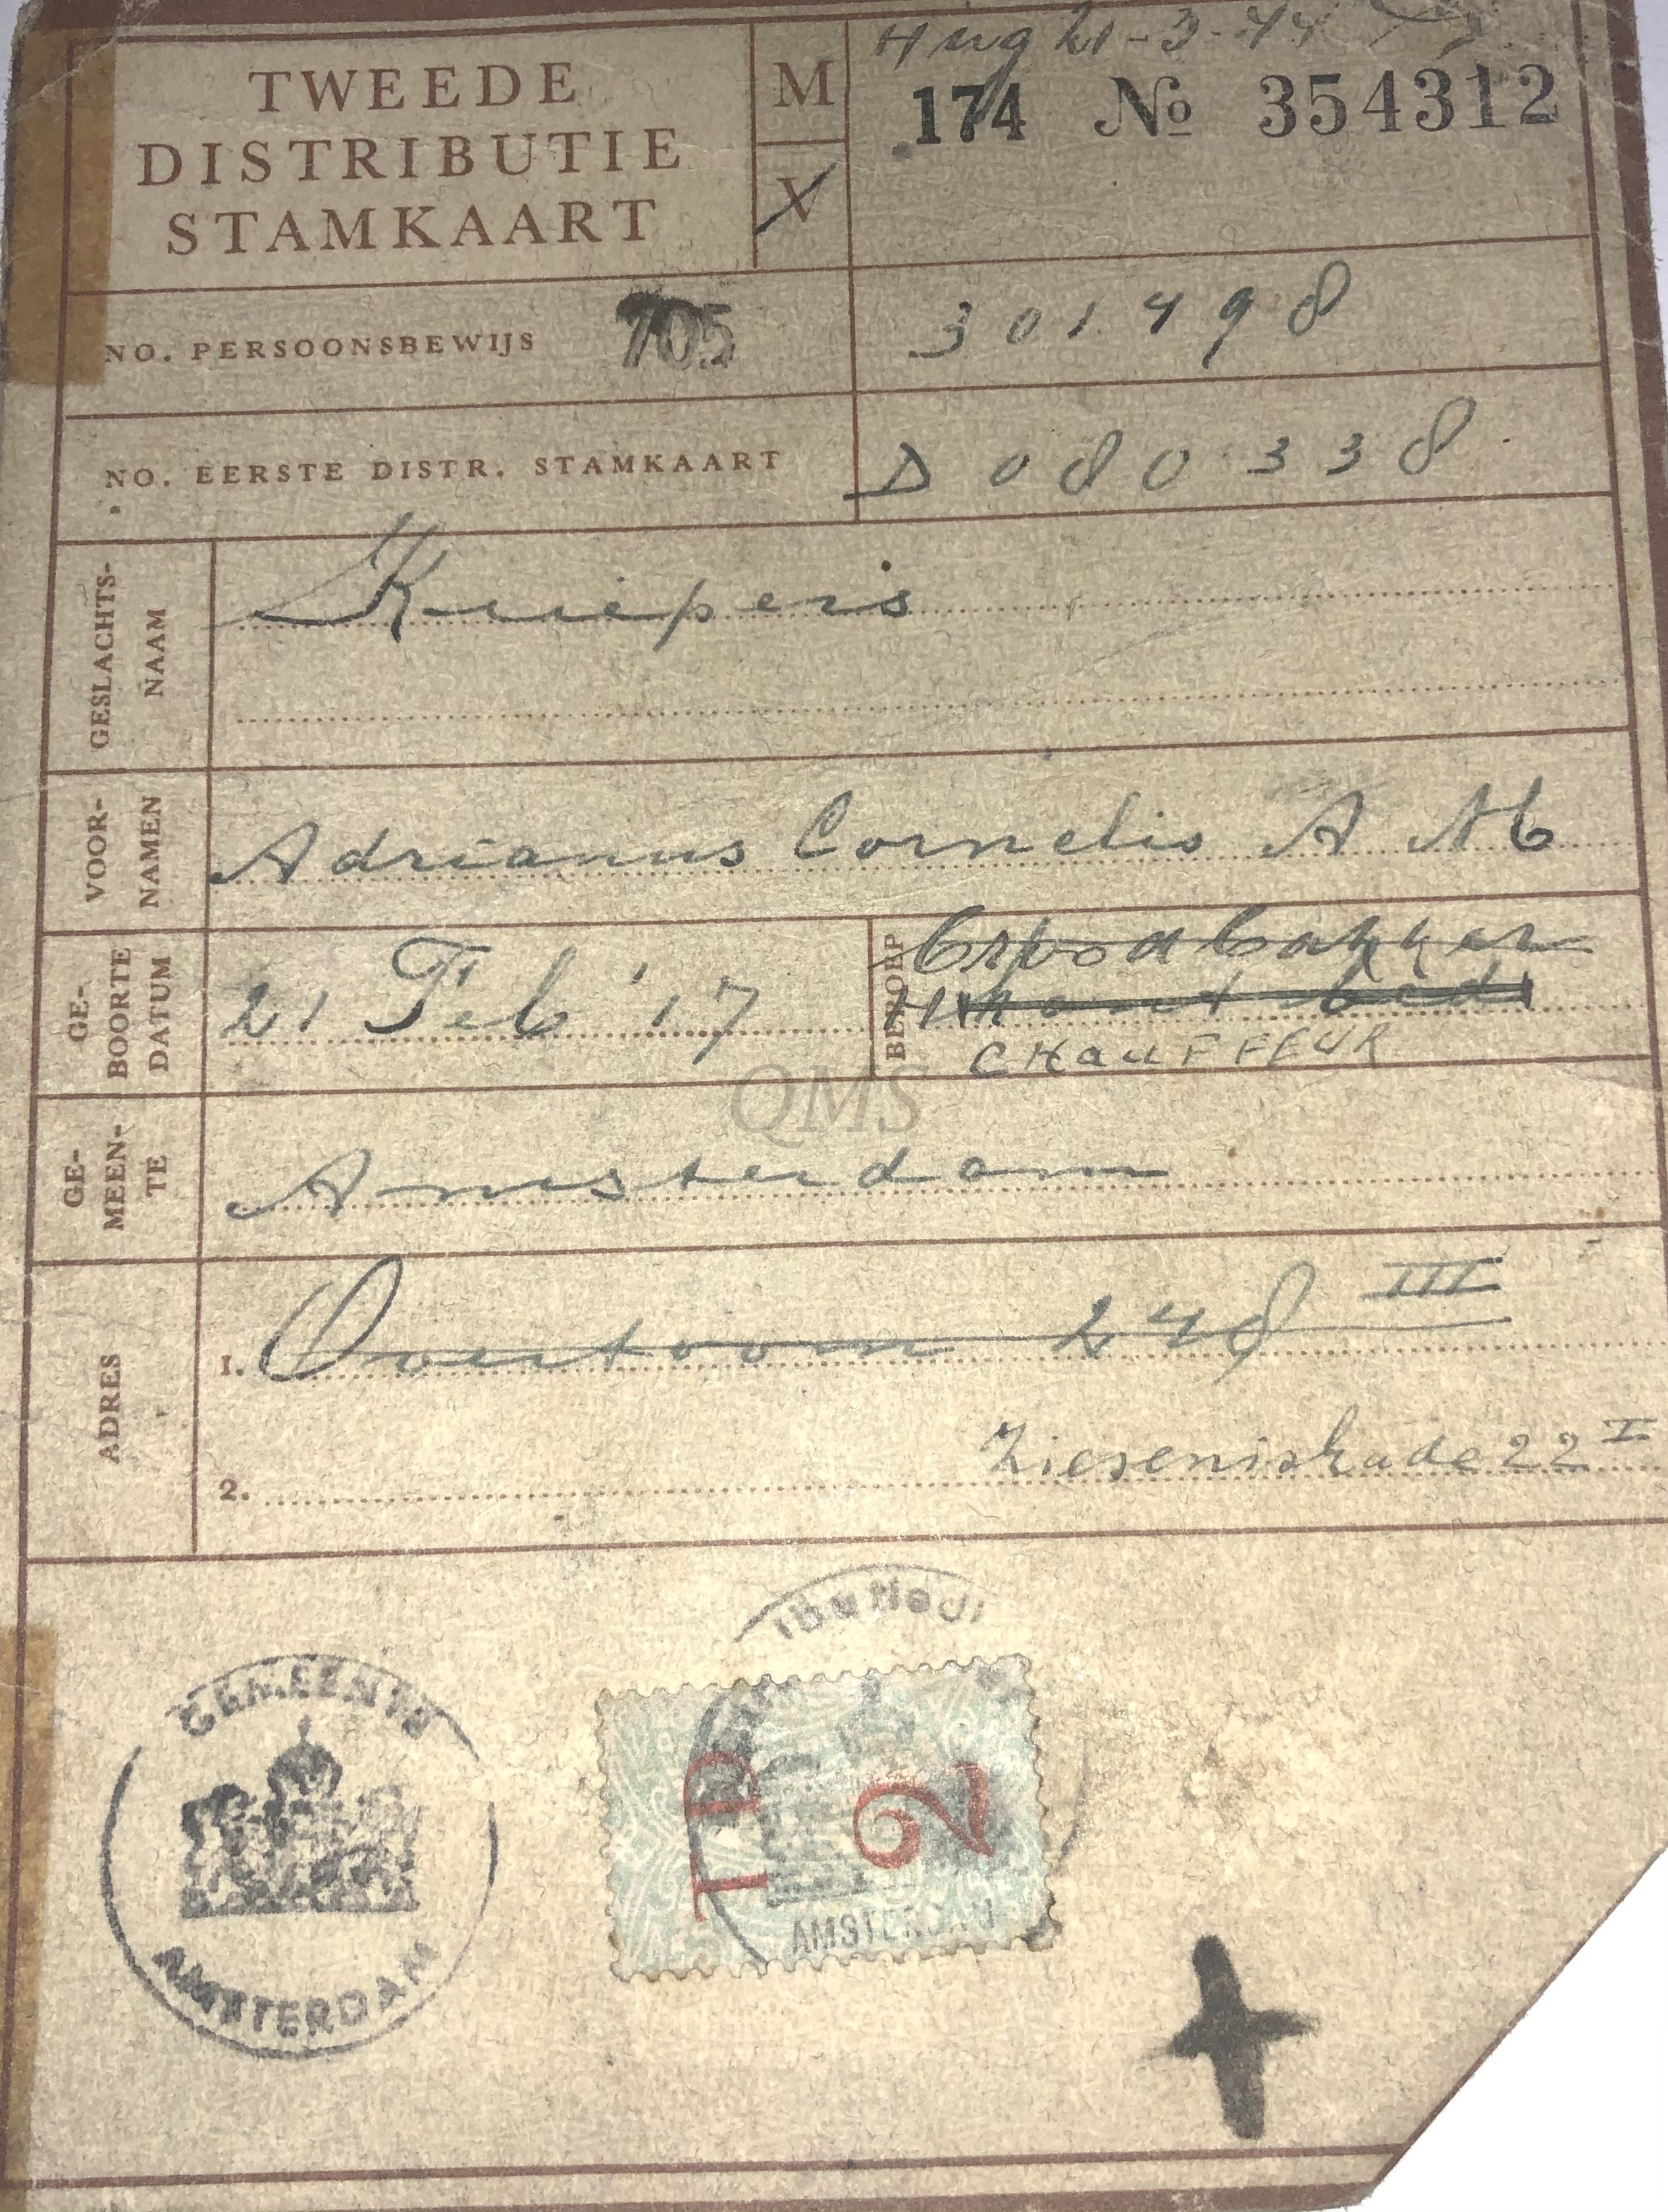 21-3-44
TWEEDE
DISTRIBUTIE
STAMKAART
M
V
174 № 354312
NO. PERSOONSBEWIJS 705 301498
NO. EERSTE DISTR. STAMKAART D 080338
GESLACHTS-
NAAM
VOOR-
NAMEN
Adrianus Cornelis A M
GE-
BOORTE
DATUM
21 Feb '17
BEROEP
Broodbakker
CHAUFFEUR
QMS
GE-
MEEN-
TE
Amsterdam
ADRES
1. Overtoom 248 III
2. Zieseniskade 22 I
GEMEENTE
AMSTERDAM
ibutiedi
TD
2
AMSTERDAM